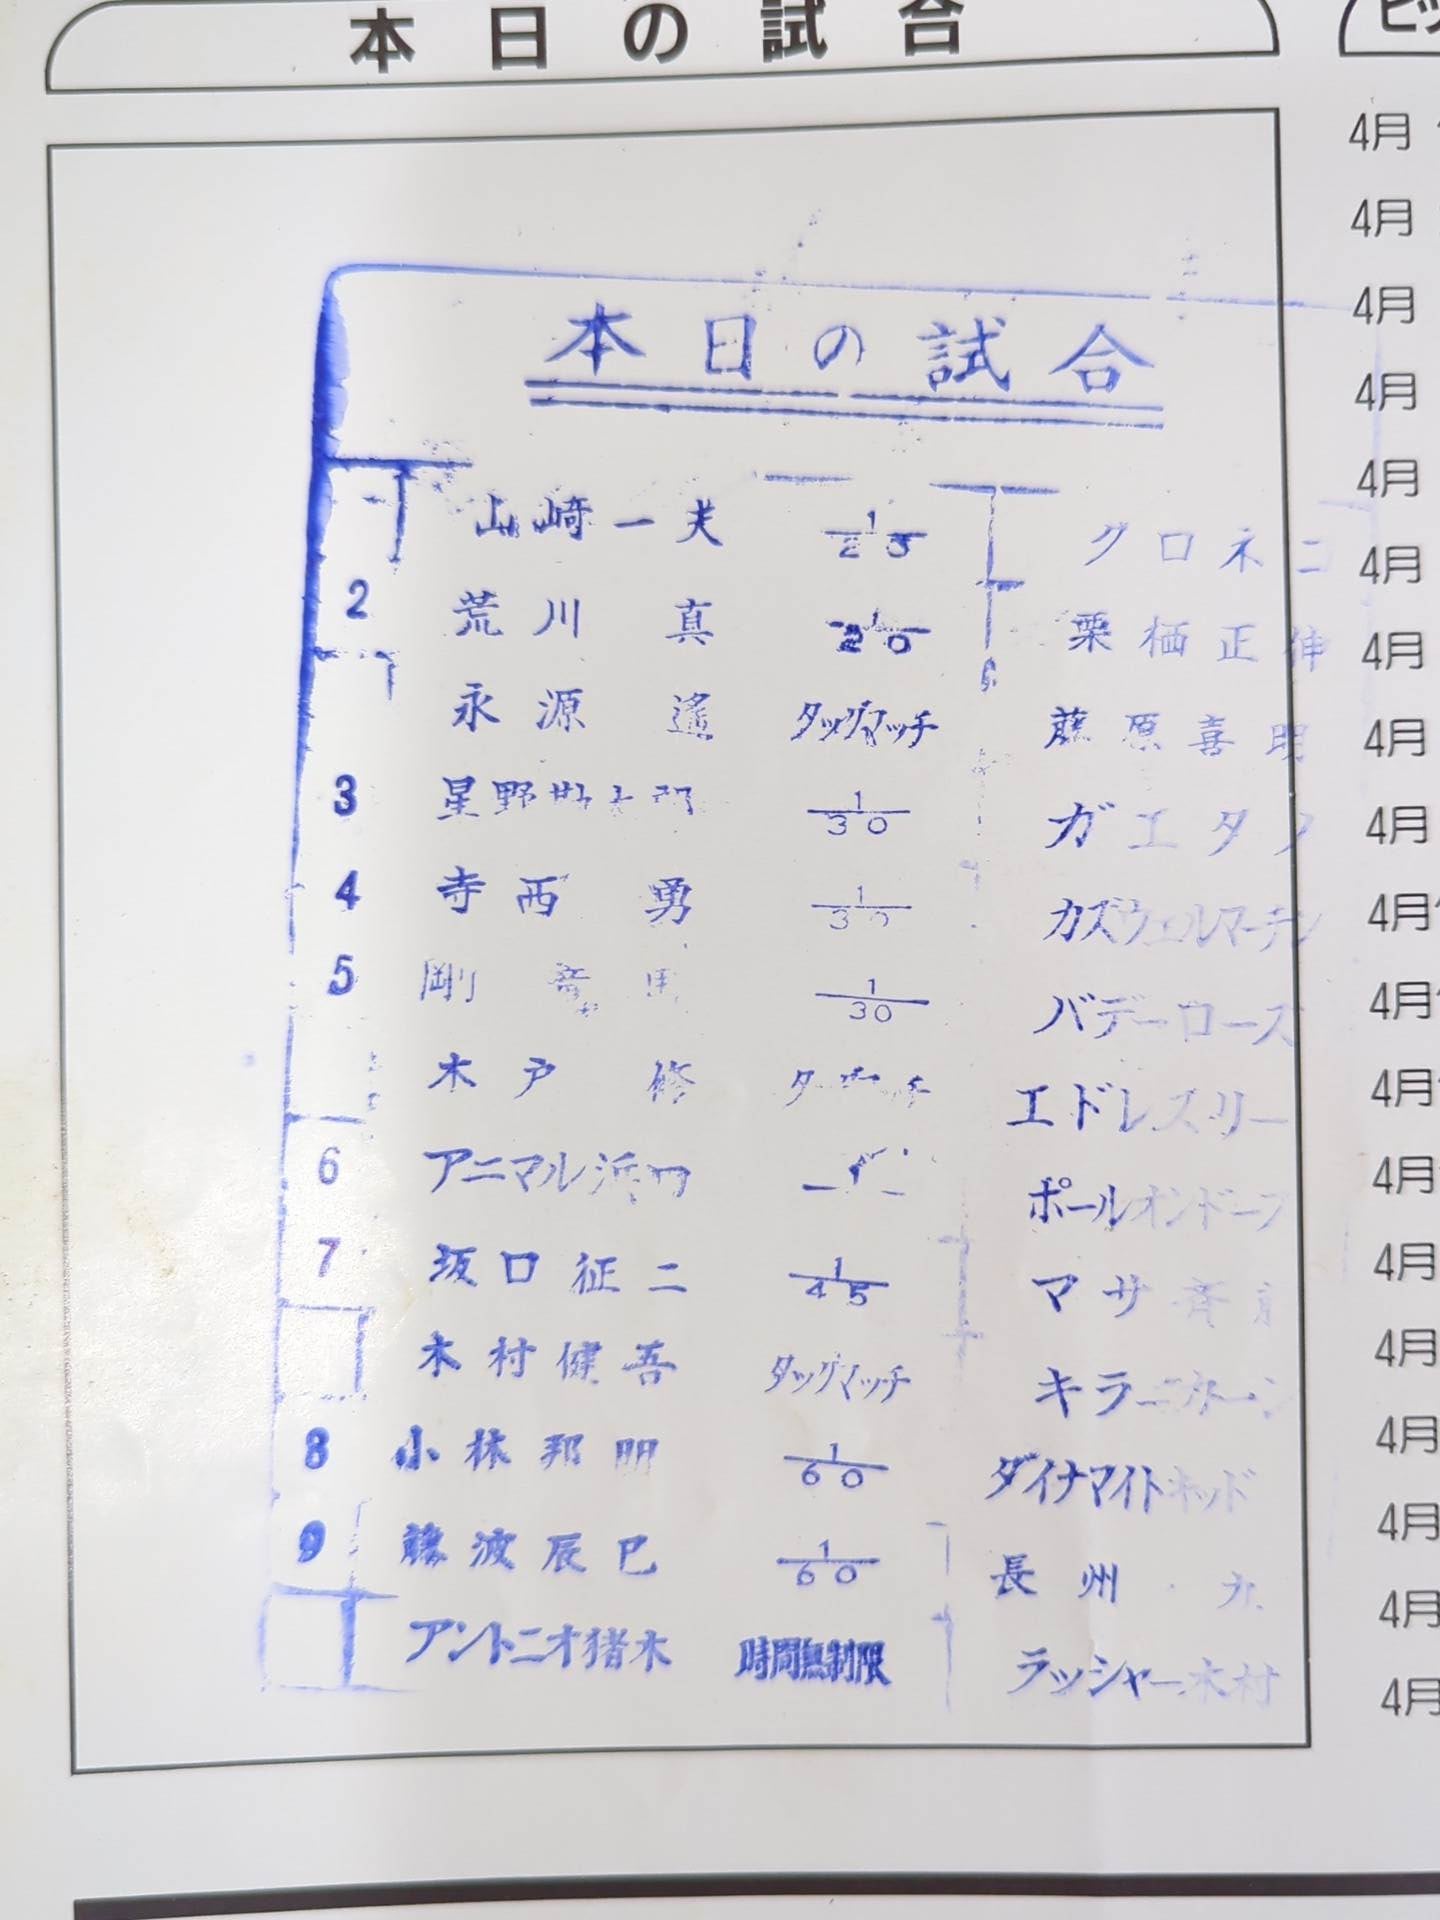 本日の試合
4月
4月
4月
4月
4月
4月
4月
4月
4月
4月
4月
4月
4月
4月
4月
4月
4月
4月
4月
本日の試合
山崎一夫 1/25 クロネコ
2 荒川 真 1/20 栗栖正伸
永源 遙 タッグマッチ 藤原喜明
3 星野 1/30 ガエタノ
4 寺西 勇 1/30 カズウェルマーチン
5 剛 竜馬 1/30 バデーローズ
木戸 修 エドレスリー
6 アニマル浜口 ポールオンドーフ
7 坂口征二 1/45 マサ斉
木村健吾 タッグマッチ キラーカーン
8 小林邦明 1/60 ダイナマイトキッド
9 藤波辰巳 1/60 長州 力
アントニオ猪木 時間無制限 ラッシャー木村